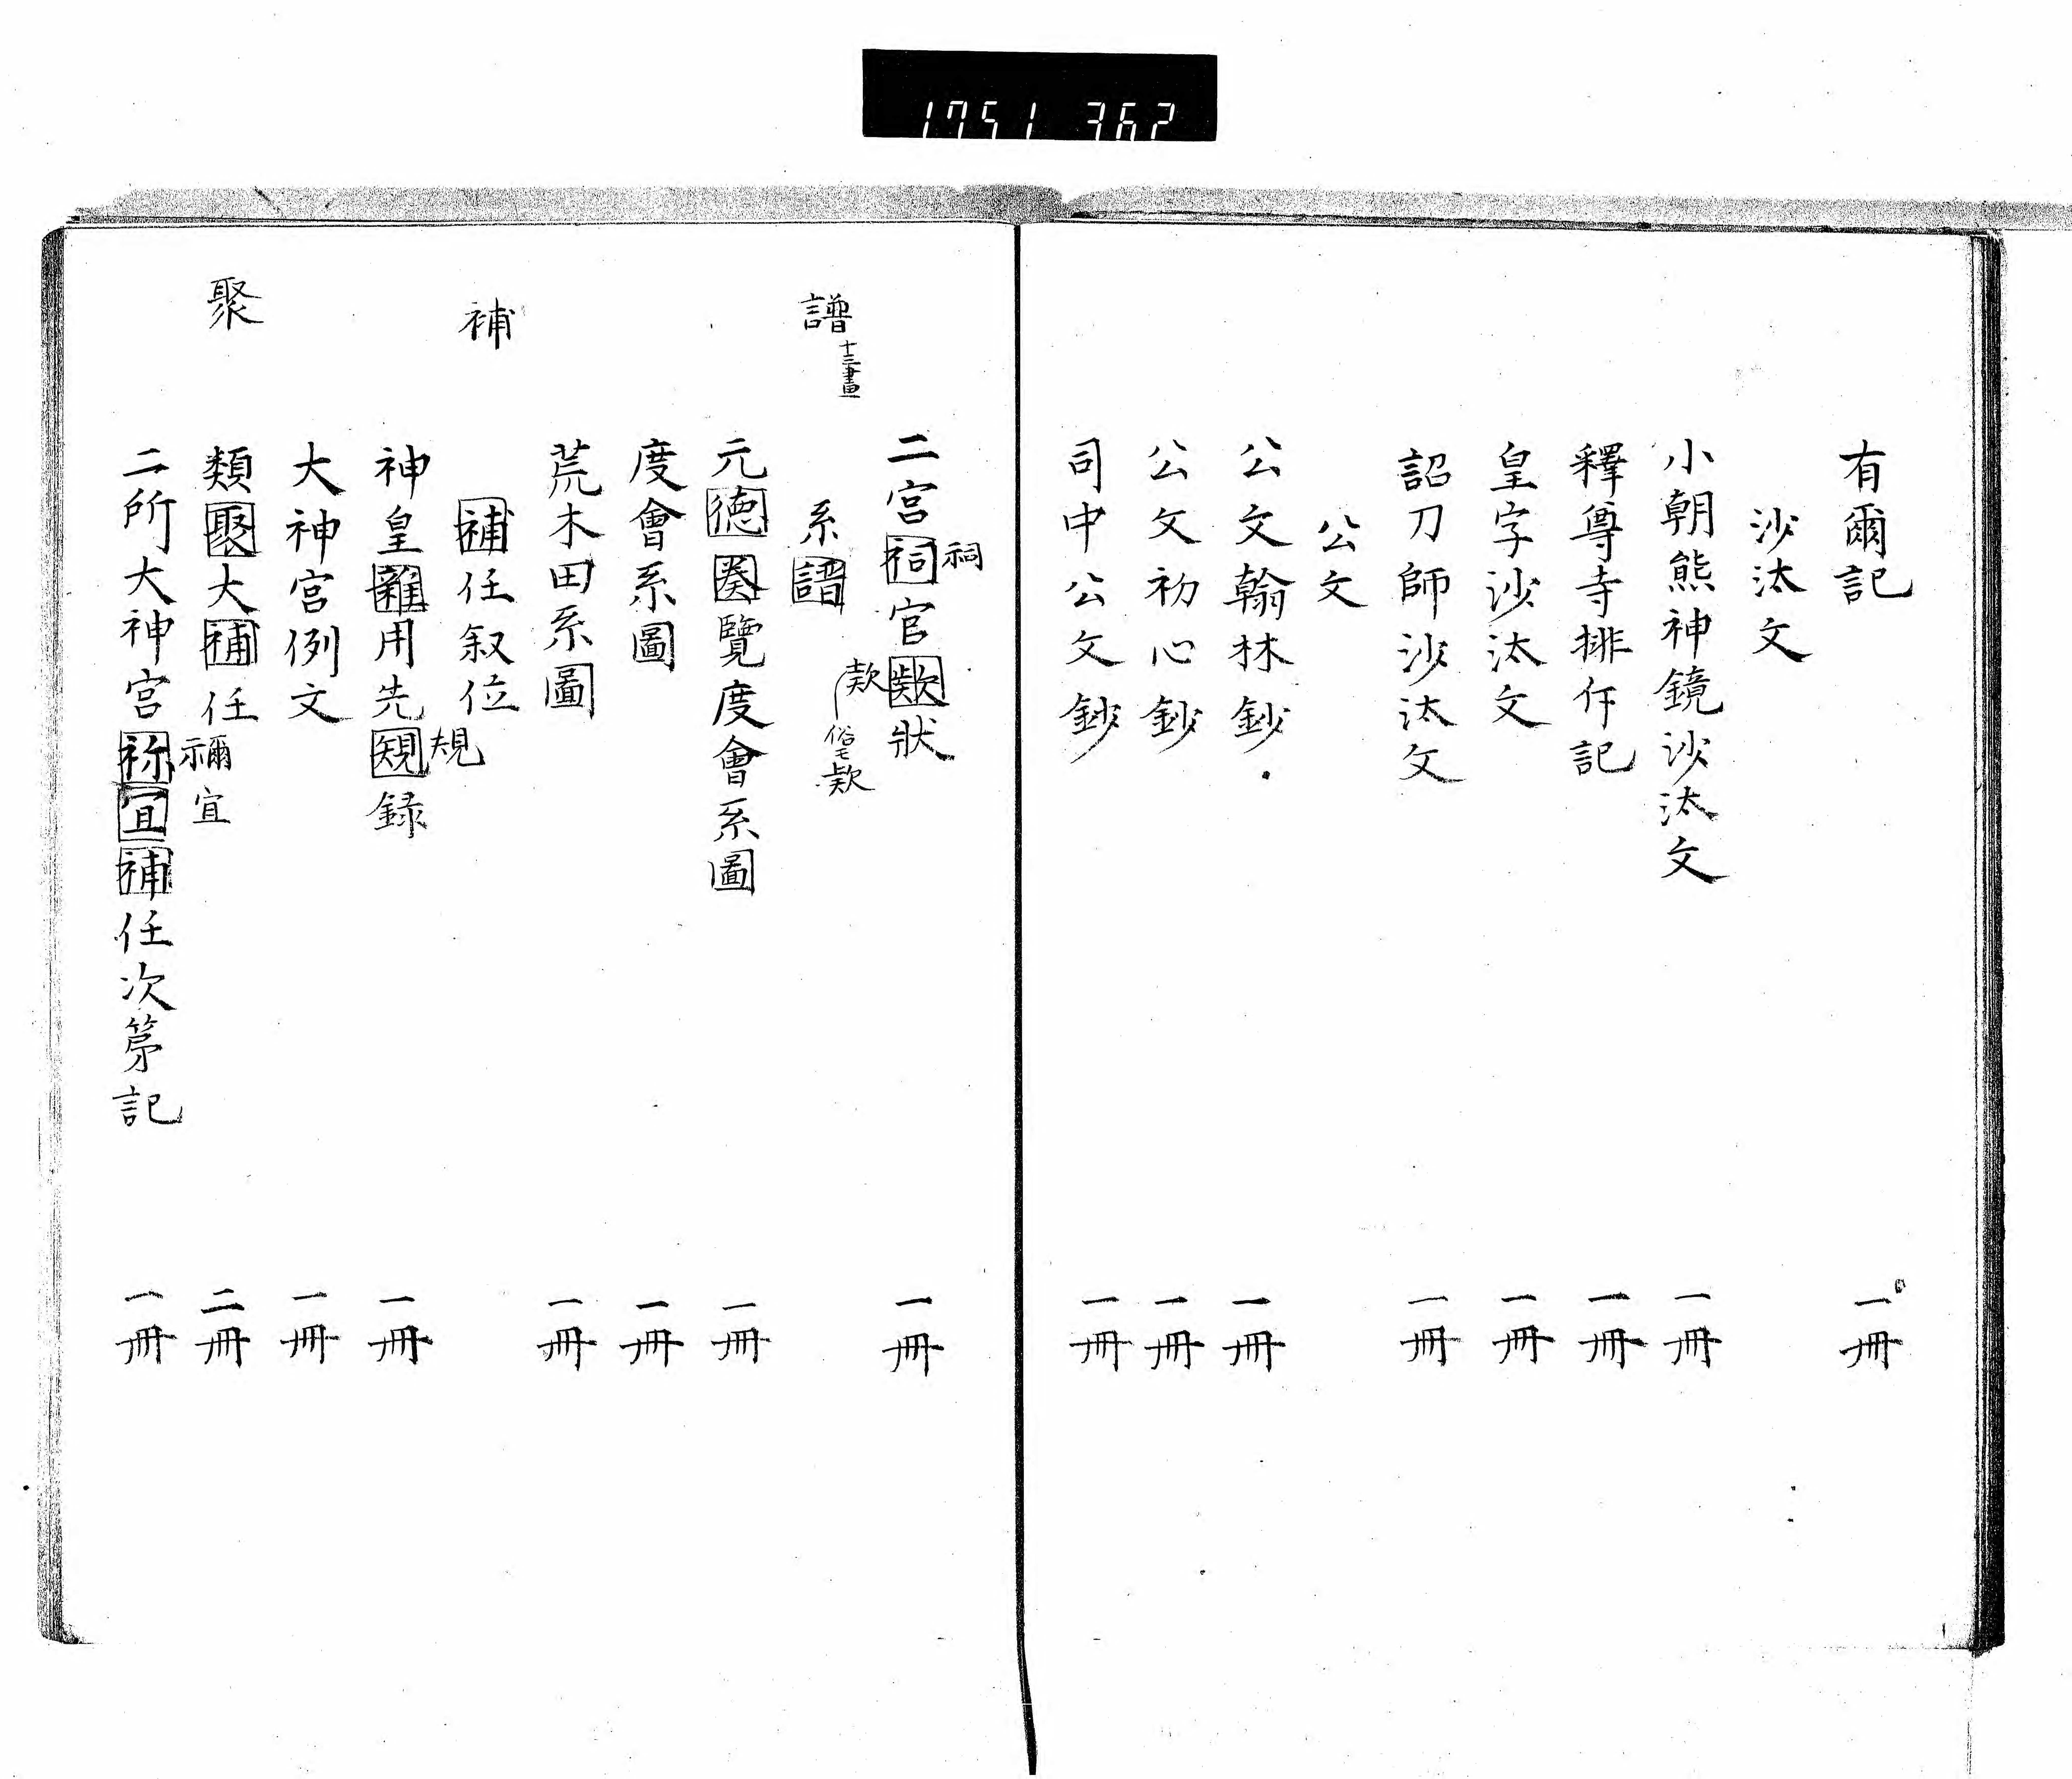 1751 362
有爾記 一冊
沙汰文
小朝熊神鏡沙汰文 一冊
釋尊寺排仵記 一冊
皇字沙汰文 一冊
詔刀師沙汰文 一冊
公文
公文翰林鈔 一冊
公文初心鈔 一冊
司中公文鈔 一冊
二宮祠官欵狀 一冊
祠
欵
俗乍欵
譜
十三畫
系譜
元徳奏覽度會系圖 一冊
度會系圖 一冊
荒木田系圖 一冊
補
補任叙位
規
神皇雜用先規録 一冊
大神宮例文 一冊
聚
類聚大補任 二冊
禰宜
二所大神宮祢宜補任次苐記 一冊